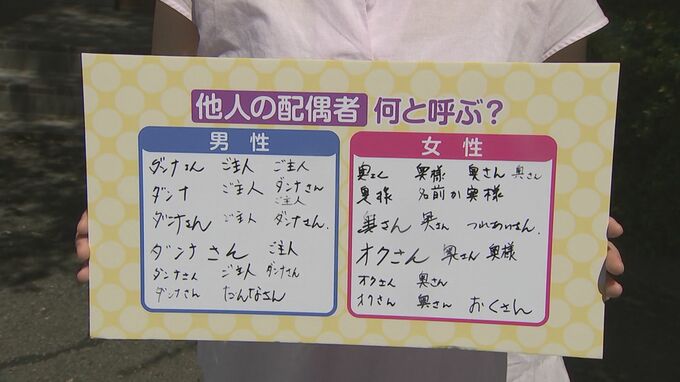 他人の配偶者 何と呼ぶ?
男性
ダンナさん ご主人 ご主人
ダンナ ご主人 ダンナさん
ご主人
ダンナさん ご主人 ダンナさん.
ダンナさん ご主人
ダンナさん ご主人 ダンナさん
ダンナさん だんなさん
女性
奥さん 奥様 奥さん 奥さん
奥様 名前か奥様
奥さん 奥さん つれあいさん.
オクさん 奥さん 奥様
オクさん 奥さん
オクさん 奥さん おくさん